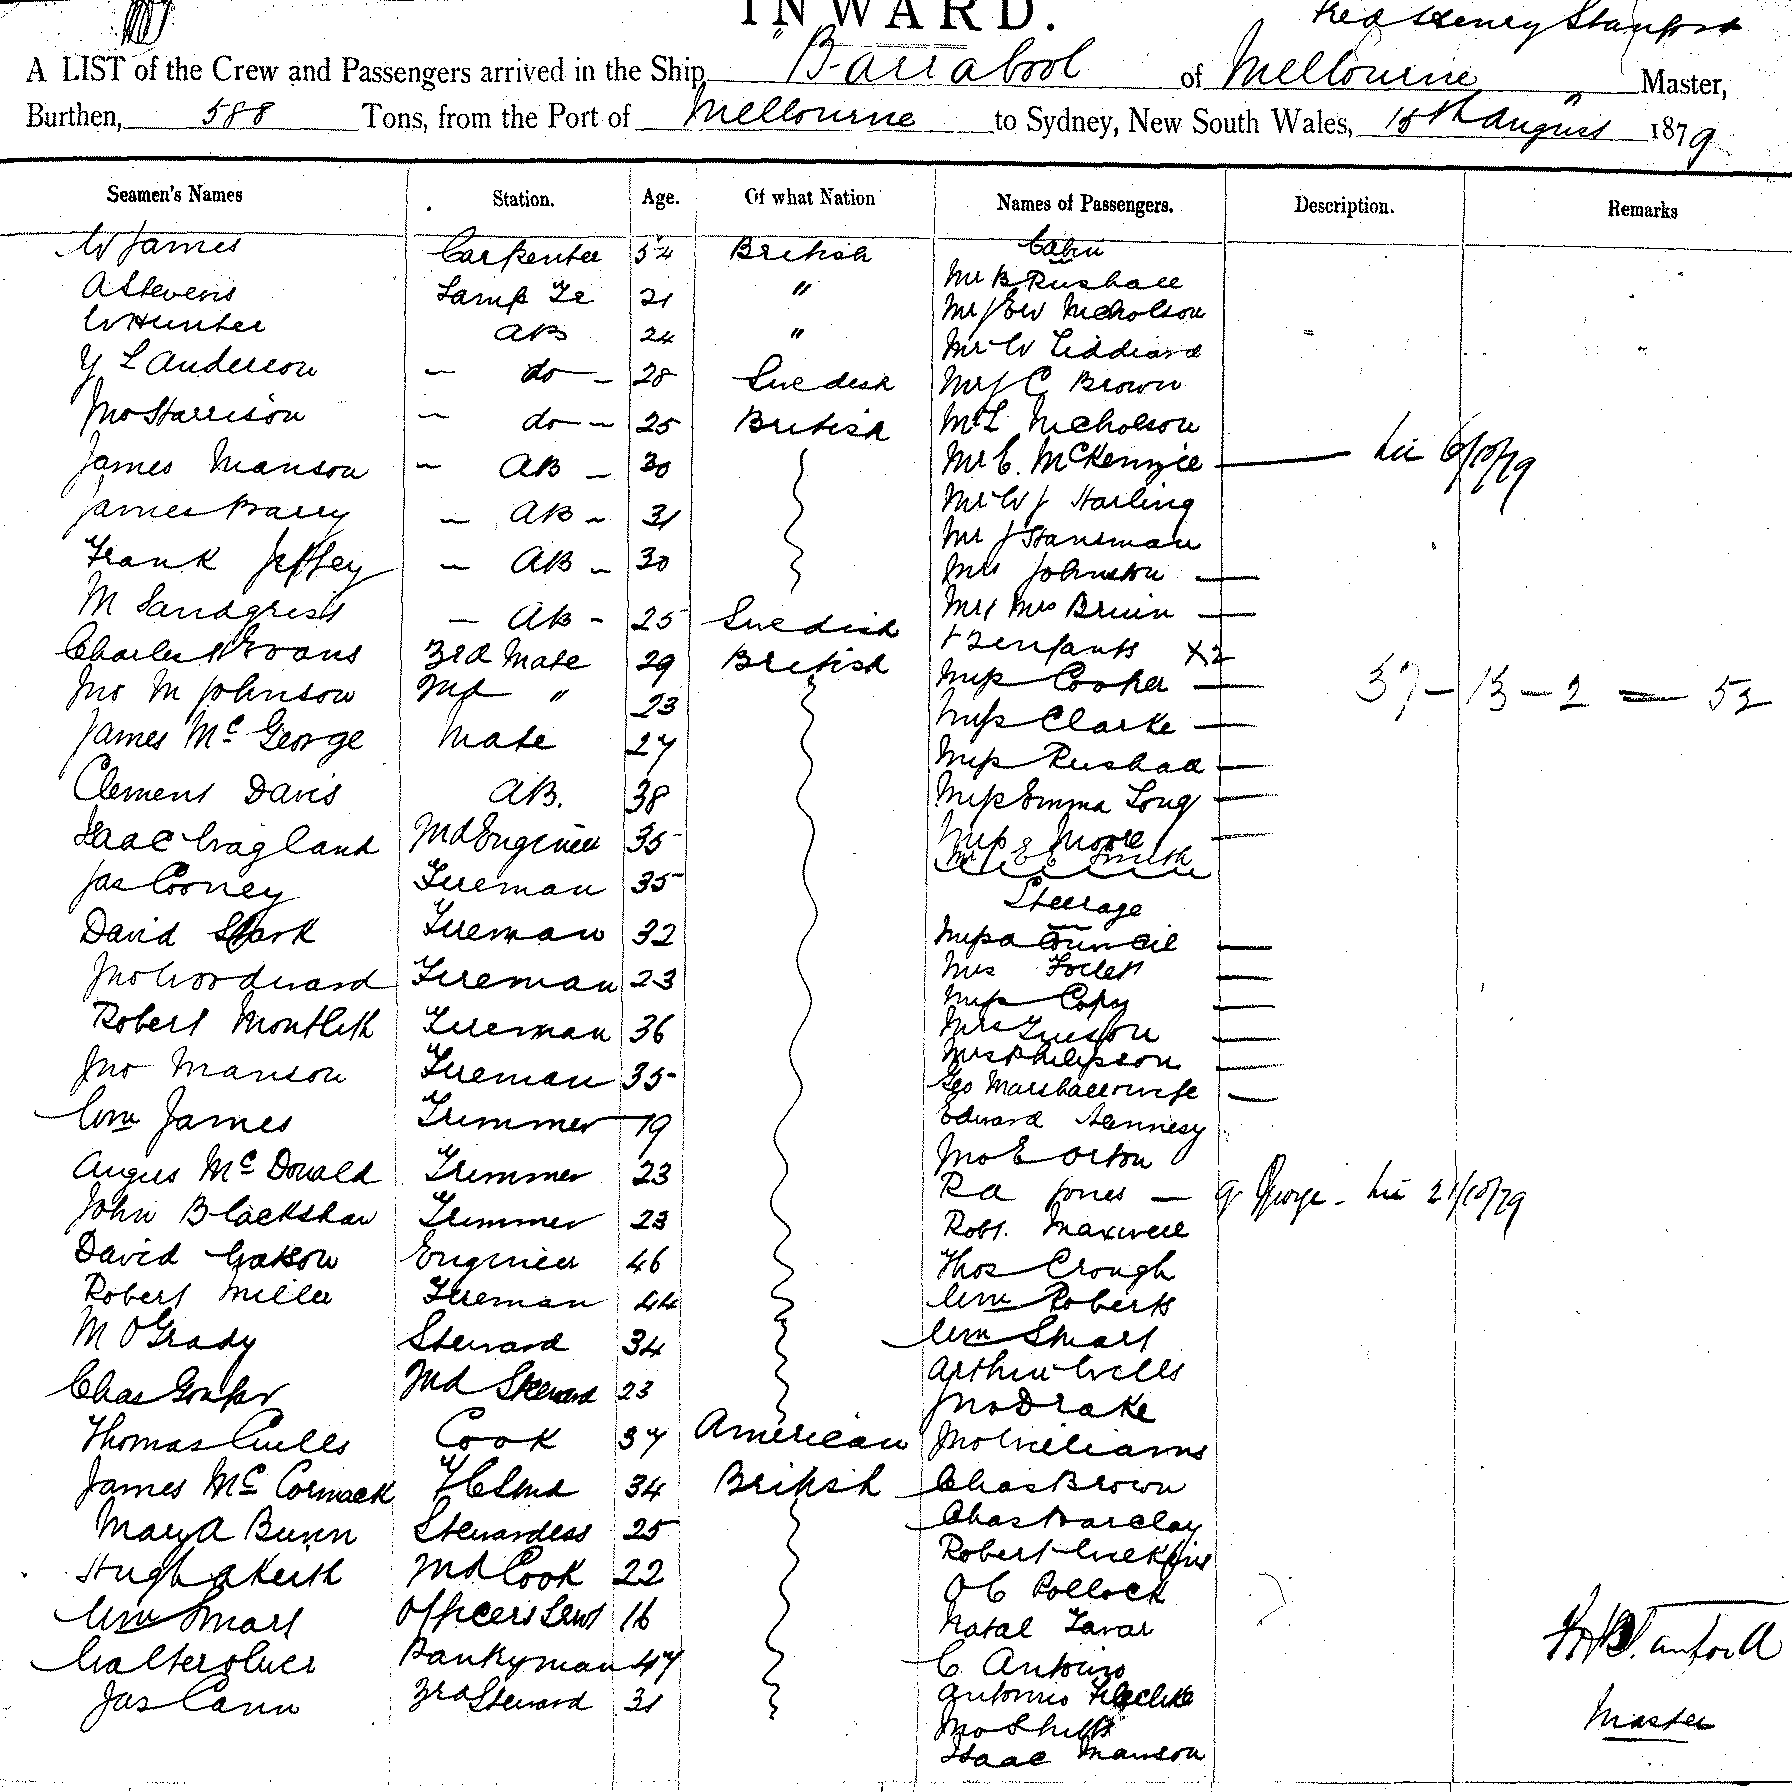 INWARD.
Fred Henry Stanford
A LIST of the Crew and Passengers arrived in the Ship "Barrabool" of Melbourne Master,
Burthen, 588 Tons, from the Port of Melbourne to Sydney, New South Wales, 15th August 1879
Seamen's Names Station. Age. Of what Nation Names of Passengers. Description. Remarks
W James Carpenter 54 British Cabin
Mr B Rushall
A Stevens Lamp Tr 21 "
Mr J Ew Nicholson
W Hunter AB 24 "
Mr W Liddiard
Y L Anderson - do - 28 Swedish Mr J C Brown
Jno Harrison - do - 25 British Mr L Nicholson
James Manson - AB - 30 Mr C. McKenzie — Lic 6/10/79
Mr W J Starling
James Barry - AB - 31
Mr J Stansman
Frank Jeffey - AB - 30 Mrs Johnston —
M Sandgrist - AB - 25 Swedish Mr & Mrs Bruin —
+ 2 enfants X2
Charles Evans 3rd Mate 29 British
Miss Cooper — 37 - 13 - 2 = 52
Jno M Johnson 2nd " 23
Miss Clarke —
James McGeorge Mate 27
Miss Rushall —
Clement Davis AB. 38 Miss Emma Long —
Isaac Cragland 2nd Engineer 35 Miss Moore —
Mr E C Smith
Jas Cooney Fireman 35
Steerage
David Stark Fireman 32 Miss A Council —
Jno Woodward Fireman 23 Mrs —
Miss Copy —
Robert Montlith Fireman 36 Mrs —
Mrs Philipson —
Jno Manson Fireman 35 Geo Marshall & wife —
Wm James Trimmer 19 Edward Hennesy
Jno E Orton
Angus McDonald Trimmer 23
R A Jones — G George - Lic 21/10/79
John Blackshaw Trimmer 23 Robt. Maxwell
David Engineer 46 Thos Crough
Robert Miller Fireman 44 Wm Roberts
M O'Grady Steward 34 Wm Smart
Arthur Wells
Chas 2nd Steward 23
Jno Drake
Thomas Cuells Cook 37 American Jno Williams
James McCormack F C Smd 34 British Chas Brown
Mary A Bunn Stewardess 25 Chas Barclay
Robert Wilkins
Hugh A Keith 2nd Cook 22 O C Pollock
Wm Smart Officers Servt 16 Natal Tavar
Walter Oliver Donkyman 47 C Antonio
Jas Cann 3rd Steward 31 Antonio
Jno
Isaac Manson
F H Stanford
Master